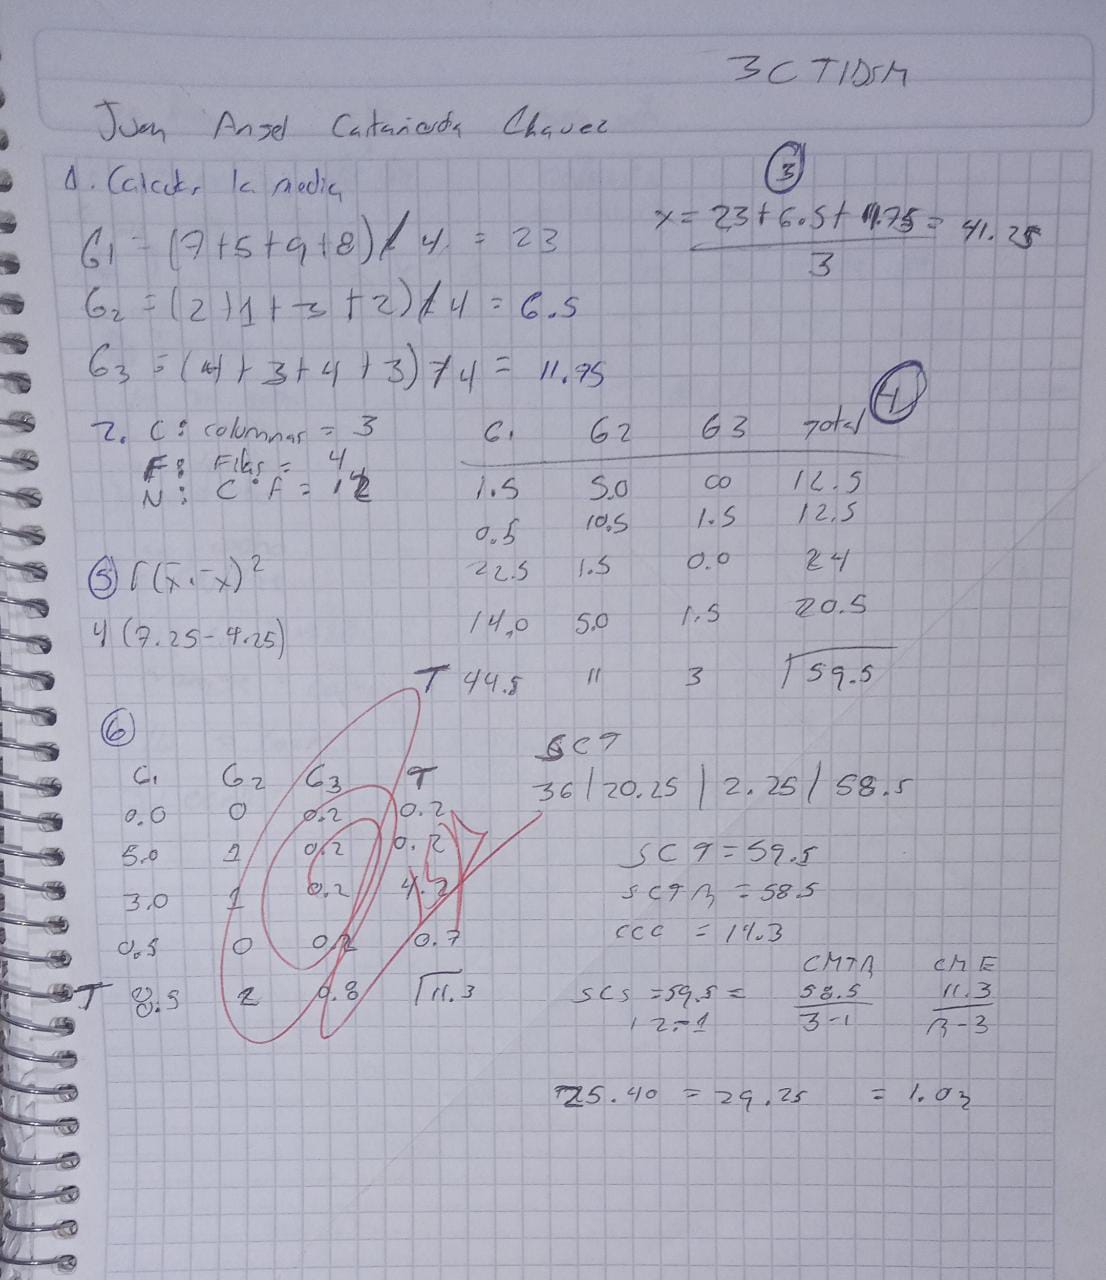 3CTIDSM
Juan Angel Castañeda Chavez
1. Calcular la media
G1 = (7+5+9+8)/4 = 23
G2 = (2+1+3+2)/4 = 6.5
G3 = (4+3+4+3)/4 = 11.75
3
x = 23+6.5+11.75 = 41.25
3
2. C: columnas = 3
F: Filas = 4
N: C*F = 12
4
G1 G2 G3 Total
1.5 5.0 00 12.5
0.5 10.5 1.5 12.5
22.5 1.5 0.0 24
14.0 5.0 1.5 20.5
T 44.5 11 3 59.5
5
4(7.25-4.25)
6
G1 G2 G3 T
0.0 0 0.2 0.2
5.0 1 0.2
3.0 1 0.2 4.2
0.5 0 0.2 0.7
T 8.5 2 0.8 11.3
SCT
36/20.25/2.25/58.5
SCT=59.5
SCTR=58.5
CCC = 11.3
CMTR CME
SCS =59.5= 58.5 11.3
12-1 3-1 12-3
25.40 = 29.25 = 1.02